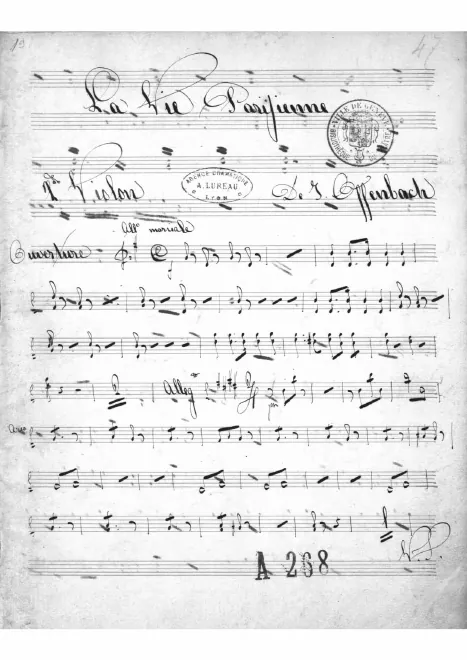 19 47
La Vie Parisienne
VILLE DE GENÈVE
1er Violon
AGENCE DRAMATIQUE
A. LUREAU
LYON
De J. Offenbach
Allo marziale
Ouverture
Allegro
V.S.
A 268